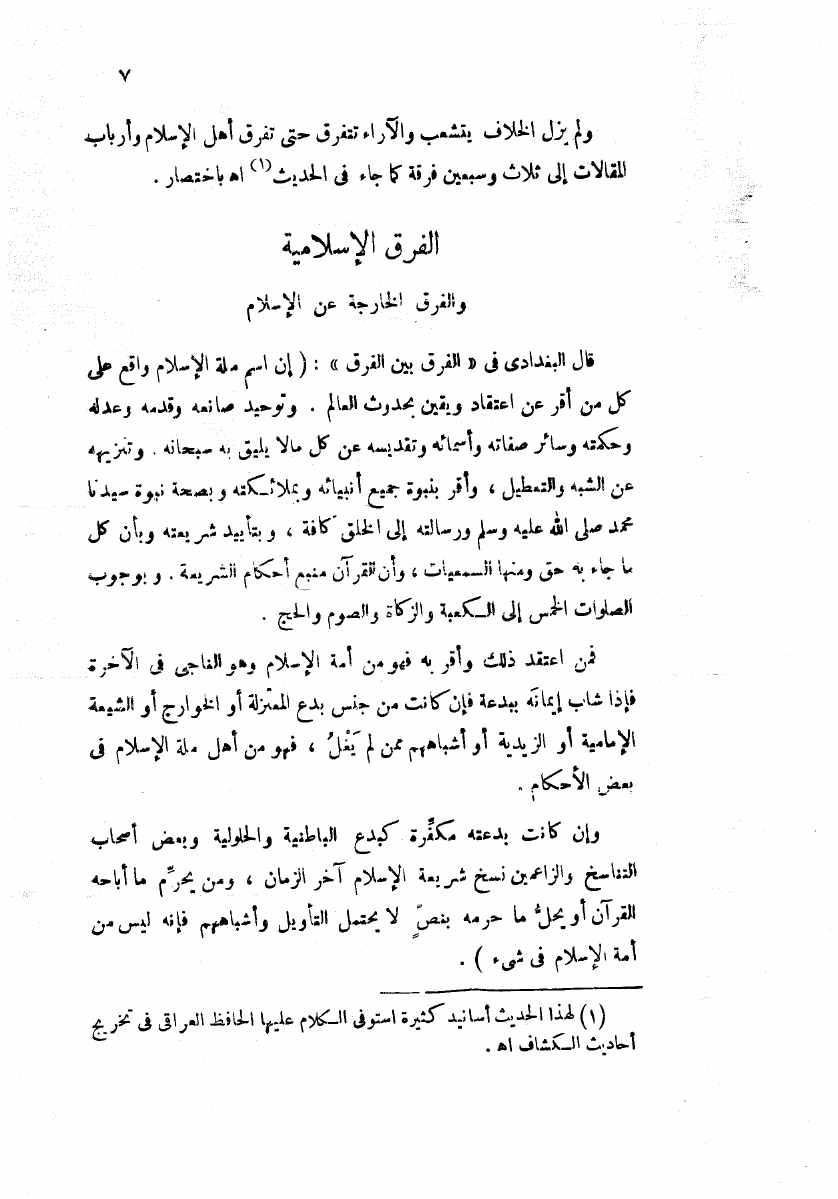 ٧
ولم يزل الخلاف يتشعب والآراء تتفرق حتى تفرق أهل الإسلام وأرباب
المقالات إلى ثلاث وسبعين فرقة كما جاء فى الحديث (١) اه باختصار .
الفرق الإسلامية
والفرق الخارجة عن الإسلام
قال البغدادى فى « الفرق بين الفرق » : ( إن اسم ملة الإسلام واقع على
كل من أقر عن اعتقاد ويقين بحدوث العالم . وتوحيد صانعه وقدمه وعدله
وحكمته وسائر صفاته وأسمائه وتقديسه عن كل مالا يليق به سبحانه . وتنزيهه
عن الشبه والتعطيل ، وأقر بنبوة جميع أنبيائه وبملائكته وبصحة نبوة سيدنا
محمد صلى الله عليه وسلم ورسالته إلى الخلق كافة ، وبتأييد شريعته وبأن كل
ما جاء به حق ومنها السمعيات ، وأن القرآن منبع أحكام الشريعة . وبوجوب
الصلوات الخمس إلى الكعبة والزكاة والصوم والحج .
فمن اعتقد ذلك وأقر به فهو من أمة الإسلام وهو الناجى فى الآخرة
فإذا شاب إيمانَه ببدعة فإن كانت من جنس بدع المعتزلة أو الخوارج أو الشيعة
الإمامية أو الزيدية أو أشباههم ممن لم يَغْلُ ، فهو من أهل ملة الإسلام فى
بعض الأحكام .
وإن كانت بدعته مكفِّرة كبدع الباطنية والحلولية وبعض أصحاب
التناسخ والزاعمين نسخ شريعة الإسلام آخر الزمان ، ومن يحرِّم ما أباحه
القرآن أو يحلُّ ما حرمه بنصٍّ لا يحتمل التأويل وأشباههم فإنه ليس من
أمة الإسلام فى شىء ) .
(١) لهذا الحديث أسانيد كثيرة استوفى الكلام عليها الحافظ العراقى فى تخريج
أحاديث الكشاف اه .